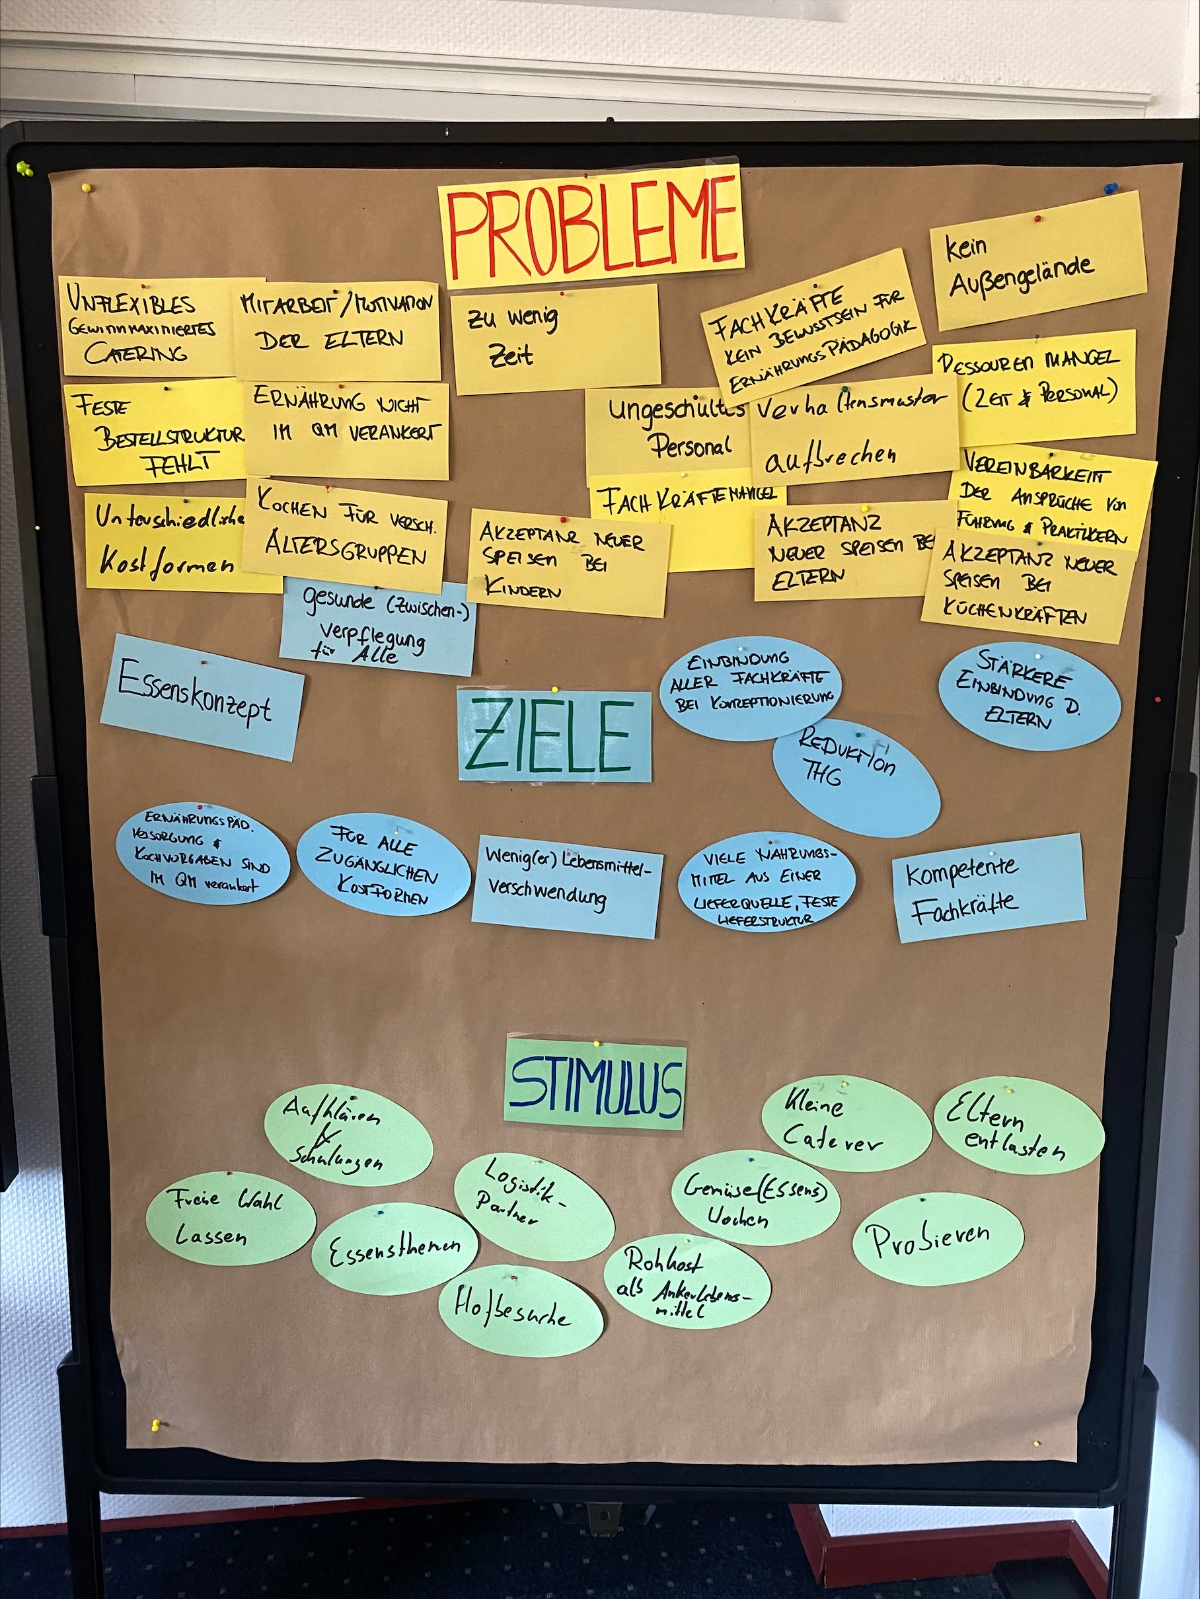 PROBLEME
UNFLEXIBLES
GEWINNMAXIMIERTES
CATERING
MITARBEIT/MOTIVATION
DER ELTERN
zu wenig
Zeit
FACHKRÄFTE
KEIN BEWUSSTSEIN FÜR
ERNÄHRUNGSPÄDAGOGIK
kein
Außengelände
FESTE
BESTELLSTRUKTUR
FEHLT
ERNÄHRUNG NICHT
IM QM VERANKERT
Ungeschultes
Personal
Verhaltensmuster
aufbrechen
RESSOUREN MANGEL
(ZEIT & PERSONAL)
Unterschiedliche
Kostformen
KOCHEN FÜR VERSCH.
ALTERSGRUPPEN
AKZEPTANZ NEUER
SPEISEN BEI
KINDERN
FACHKRÄFTEMANGEL
AKZEPTANZ
NEUER SPEISEN BEI
ELTERN
VEREINBARKEIT
DER ANSPRÜCHE VON
FÜHRUNG & PRAKTIKERN
AKZEPTANZ NEUER
SPEISEN BEI
KÜCHENKRÄFTEN
gesunde (Zwischen-)
verpflegung
für Alle
Essenskonzept
ZIELE
EINBINDUNG
ALLER FACHKRÄFTE
BEI KONZEPTIONIERUNG
STÄRKERE
EINBINDUNG D.
ELTERN
REDUKTION
THG
ERNÄHRUNGSPÄD.
VERSORGUNG &
KOCHVORGABEN SIND
IM QM verankert
FÜR ALLE
ZUGÄNGLICHEN
KOSTFORMEN
Wenig(er) Lebensmittel-
verschwendung
VIELE NAHRUNGS-
MITTEL AUS EINER
LIEFERQUELLE, FESTE
LIEFERSTRUKTUR
Kompetente
Fachkräfte
STIMULUS
Aufklären
&
Schulungen
Kleine
Caterer
Eltern
entlasten
Freie Wahl
Lassen
Essensthemen
Logistik-
Partner
Gemüse(Essens)
Wochen
Probieren
Hofbesuche
Rohkost
als Ankerlebens-
mittel